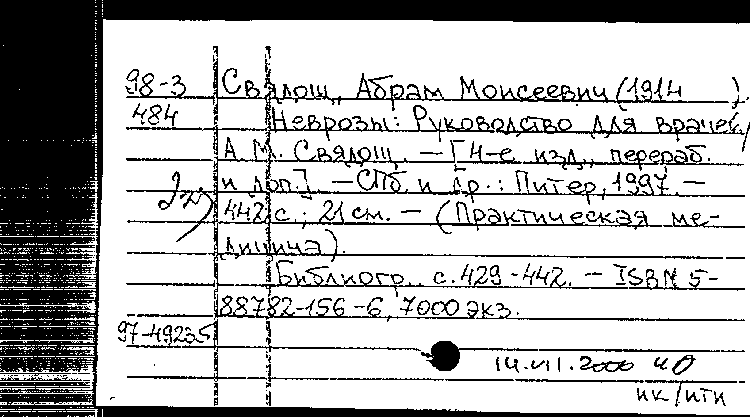 98-3 Свядощ, Абрам Моисеевич (1914 ).
484 Неврозы: Руководство для врачей /
А. М. Свядощ. — [4-е изд., перераб.
и доп.]. — СПб. и др.: Питер, 1997. —
2эк) 442 с.; 21 см. — (Практическая ме-
дицина).
Библиогр.. с. 429-442. — ISBN 5-
88782-156-6, 7000 экз.
97-49235
14.VII.2000 ИО
нк/нтн